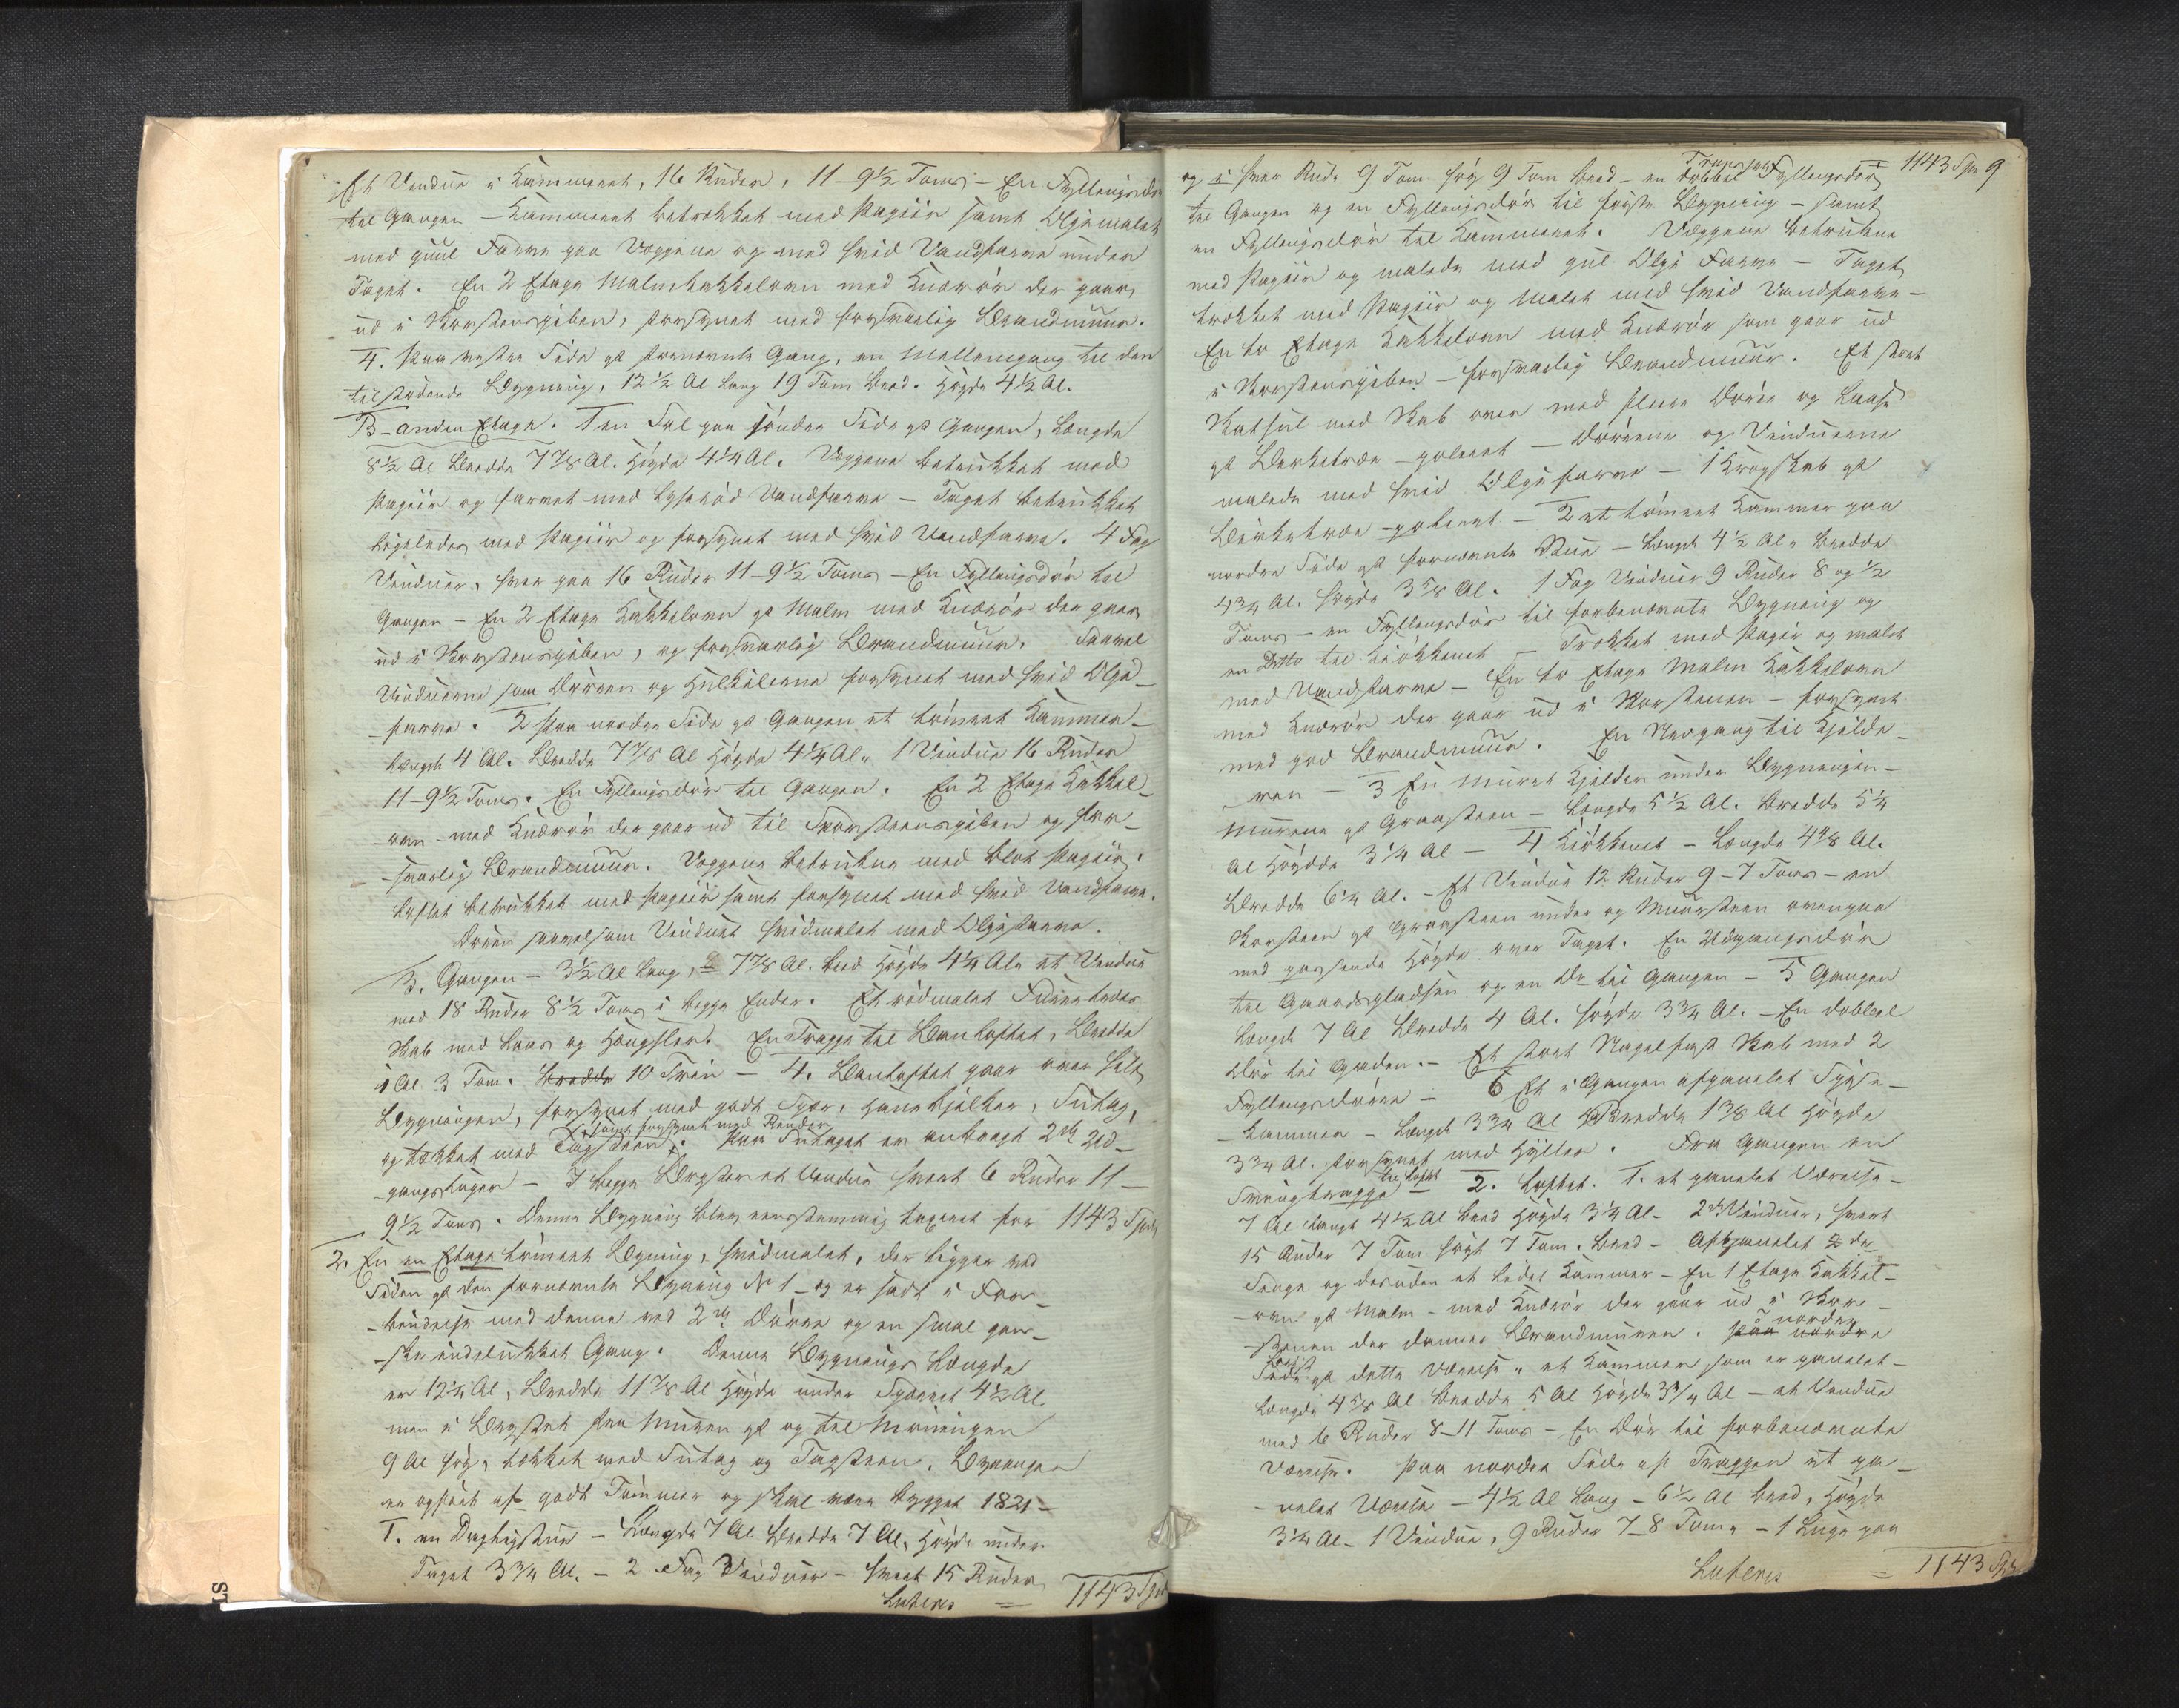 Et Vindue i Kammeret, 16 Ruder, 11-9½ Tom - En Fyllingsdør
til Gangen - Kammeret betrækket med Papiir samt Oljemalet
med guul Farve paa Væggene og med hvid Vandfarve under
Taget. En 2 Etages Malmkakkelovn med Knærør der gaar
ud i Skorsteenspiben, forsynet med forsvarlig Brandmuur.
4. Paa østre Side af fornævnte Gang, en Mellemgang til den
tilstødende Bygning, 12½ Al lang 19 Tom bred. Høyde 4½ Al.
B - anden Etage. 1 en Sal paa søndre Side af Gangen, Længde
8½ Al Bredde 7⅞ Al. Høyde 4¼ Al. Væggene betrukket med
Papiir og farvet med lyserød Vandfarve - Taget betrukket
ligeledes med Papiir og forsynet med hvid Vandfarve. 4 Fag
Vinduer, hver paa 16 Ruder 11-9½ Tom - En Fyllingsdør til
Gangen - En 2 Etages Kakkelovn af Malm med Knærør der gaar
ud i Skorsteenspiben, og forsvarlig Brandmuur. Saavel
Vinduerne som Døren og Hulkilerne forsynet med hvid Olje-
farve. 2 Paa nordre Side af Gangen et tømret Kammer -
Længde 4 Al. Bredde 7⅞ Al Høyde 4¼ Al. 1 Vindue 16 Ruder
11-9½ Tom. En Fyllingsdør til Gangen. En 2 Etages Kakkel-
ovn - med Knærør der gaar ud til Skorsteenspiben og for-
svarlig Brandmuur. Væggene betrukne med blot Papiir,
Loftet betrukket med Papiir samt forsynet med hvid Vandfarve.
Døren saavelsom Vinduet hvidmalet med Oljefarve.
3. Gangen - 3½ Al lang, 7⅞ Al. bred Høyde 4¼ Al. et Vindue
med 18 Ruder 8½ Tom i begge Ender. Et rødmalet
Skab med Laas og Hængsler. En Trappe til Bankloftet, Bredde
1 Al 3 Tom. Bredde 10 Trin - 4. Bankloftet gaar over hele
Bygningen, forsynet med godt Spær, Hanebjelker, Sutag,
samt forsynet med Render
og tækket med Tagsteen. Paa Sutaget er anbragt 2de
gangsluger - I begge Bryster et Vindue hvert 6 Ruder 11-
9½ Tom. Denne Bygning blev eenstemmig taxeret for 1143 Spd
2. En en Etage tømret Bygning, hvidmalet, der ligger ved
Siden af den fornævnte Bygning No 1 - og er sadt i For-
bindelse med denne ved 2de Dørre og en smal gan-
ske indelukket Gang. Denne Bygnings Længde
er 12¼ Al, Bredde 11⅞ Al Høyde under Spærret 4½ Al.
men i Brystet fra Muren af og til Møningen
9 Al høy, tækket med Sutag og Tagsteen. Bygningen
er opført af godt Tømmer og skal være bygget 1821 -
1. en Dagligstue - Længde 7 Al Bredde 7 Al, Høyde under
Taget 3¾ Al. - 2 Fag Vinduer - hvert 15 Ruder
Lateris = 1143 Spd
1143 Spd 9
Trappe
og i hver Rude 9 Tom høy 9 Tom bred - en dobbel Fyllingsdør
til Gangen og en Fyllingsdør til første Bygning - samt
en Fyllingsdør til Kammeret. Væggene betrukne
med Papiir og malede med guul Olje Farve - Taget
trækket med Papiir og Malet med hvid Vandfarve -
En to Etages Kakkelovn med Knærør som gaar ud
i Skorsteenspiben - forsvarlig Brandmuur. Et stort
Skab over med Dørre og Laase
af Birketræ - poleret - Dørrene og Vinduerne
malede med hvid Oljefarve - 1 Krogskab af
Birketræ - poleret - 2 et tømret Kammer paa
nordre Side af fornævnte Stue - Længde 4½ Al. Bredde
4¾ Al. Høyde 3⅝ Al. 1 Fag Vinduer 9 Ruder 8 og ½
Tom - en Fyllingsdør til forbenævnte Bygning og
en Ditto til Kiøkkenet - Trækket med Papiir og malet
med Vandfarve - En to Etages Malm Kakkelovn
med Knærør der gaar ud i Skorstenen - forsynet
med god Brandmuur. En Nedgang til Kjelde-
ren - 3 En muret Kjelder under Bygningen -
Murene af Graasteen - Længde 5½ Al. Bredde 5¼
Al Høyde 3¼ Al - 4 Kiøkkenet - Længde 4⅞ Al.
Bredde 6¼ Al. - Et Vindue 12 Ruder 9-7 Tom - en
Skorsteen af Graasteen under og Muursteen ovenpaa
med passende Høyde over Taget. En Udgangsdør
til Gaardspladsen og en Do til Gangen - 5 Gangen
Længde 7 Al Bredde 4 Al. Høyde 3¾ Al. - En dobbel
Dør til Gaden. - Et stort Nagelfast Skab med 2
Fyllingsdørre - 6 Et i Gangen afpanelet Spise-
kammer - Længde 3¾ Al Bredde 1⅜ Al Høyde
3¾ Al. forsynet med Hylder. Fra Gangen en
til Loftet
Svingtrappe - 2. Loftet. 1. et panelet Værelse -
7 Al langt 4½ Al bred Høyde 3¼ Al - 2de Vinduer, hvert
15 Ruder 7 Tom høyt 7 Tom. bred - Afpanelet
Senge og desuden et lidet Kammer - En 1 Etages Kakkel-
ovn af Malm - med Knærør der gaar ud i Skor-
stenen der danner Brandmuren. paa nordre
Side af dette Værelse et Kammer som er panelet -
Længde 4⅝ Al Bredde 5 Al Høyde 3¾ Al - et Vindue
med 6 Ruder 8-11 Tom - En Dør til forbenævnte
Værelse. Paa nordre Side af Trappen et pa-
nelet Værelse - 4½ Al lang - 6½ Al bred, Høyde
3¼ Al - 1 Vindue, 9 Ruder 7-8 Tom - 1 Luge paa
Lateris = 1143 Spd